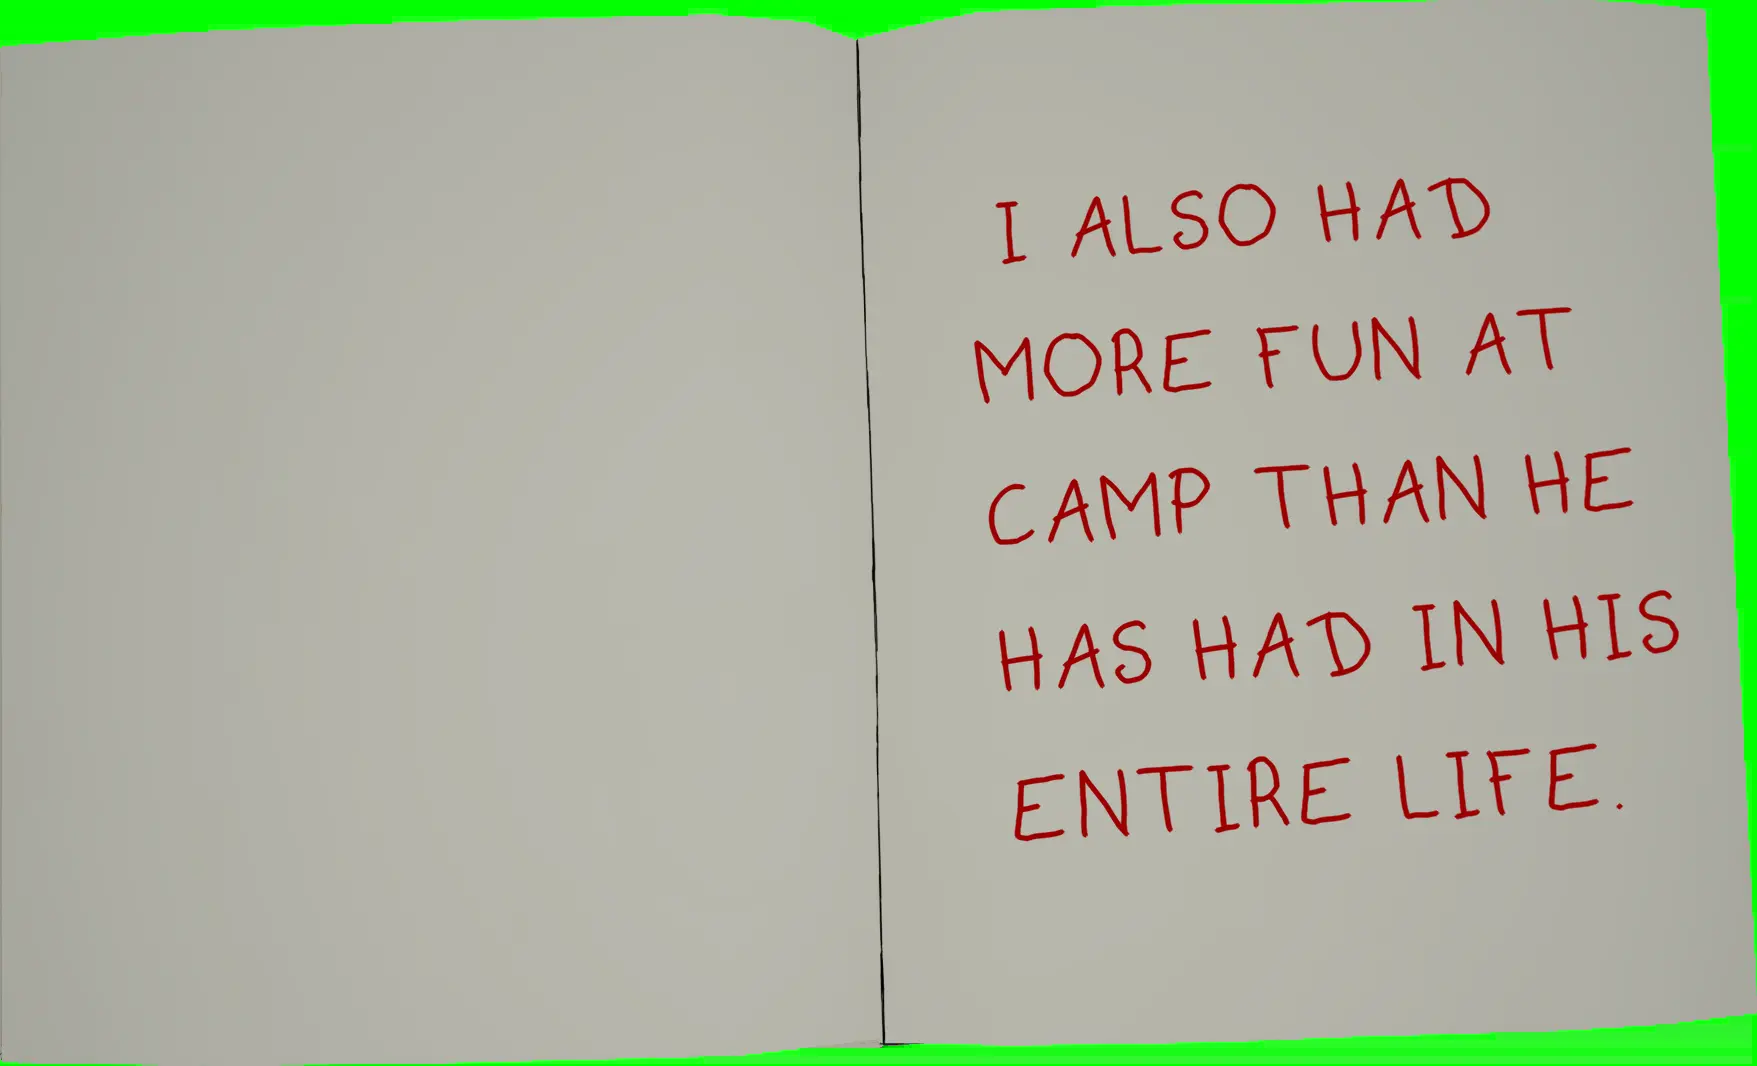 I ALSO HAD
MORE FUN AT
CAMP THAN HE
HAS HAD IN HIS
ENTIRE LIFE.